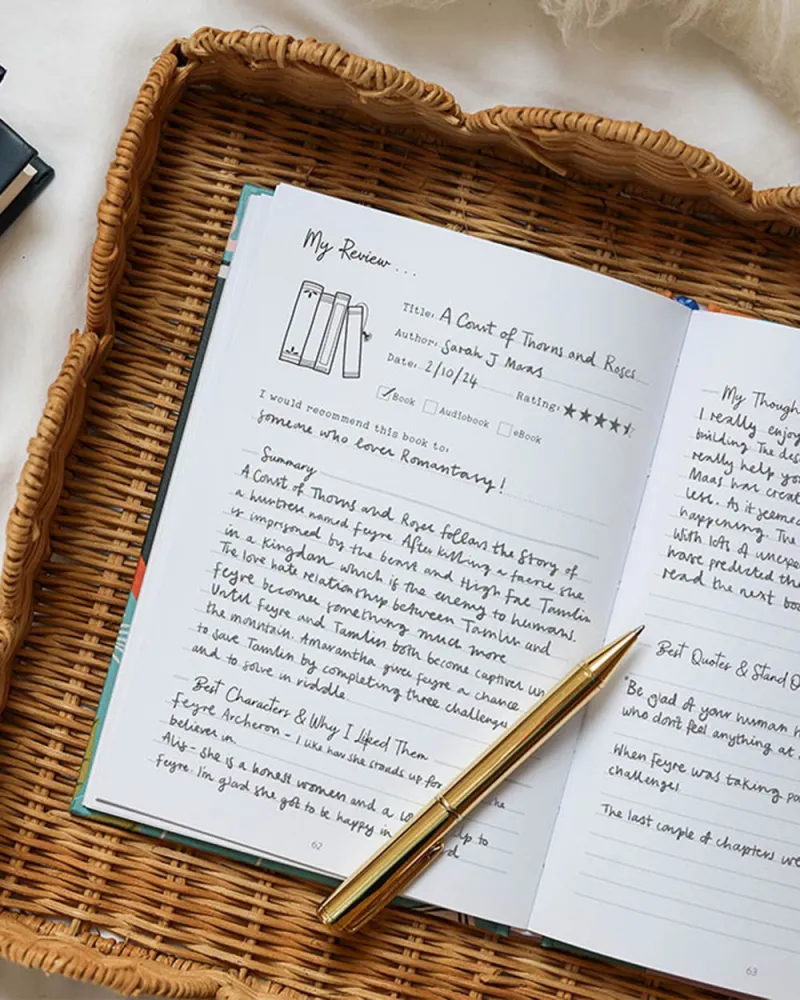 My Review...
Title: A Court of Thorns and Roses
Author: Sarah J Maas
Date: 2/10/24 Rating:
Book Audiobook eBook
I would recommend this book to:
someone who loves Romantasy!
Summary
A Court of Thorns and Roses follows the Story of
a huntress named Feyre. After killing a faerie she
is imprisoned by the beast and High Fae Tamlin
in a Kingdom which is the enemy to humans.
The love hate relationship between Tamlin and
Feyre becomes something much more
Until Feyre and Tamlin both become captives un
the mountain. Amarantha gives Feyre a chance
to save Tamlin by completing three challenges
and to solve in riddle.
Best Characters & Why I Liked Them
Feyre Archeron - I like how she stands up for the
believes in.
Alis - she is a honest women and a up to
Feyre. I'm glad she got to be happy in
62
My Though
I really enjoy
building. The des
really help you
Maas has creat
less. As it seemed
happening. The
With lots of unexpe
have predicted th
read the next boo
Best Quotes & Stand O
"Be glad of your human h
who don't feel anything at
When Feyre was taking pa
challenges
The last couple of chapters we
63